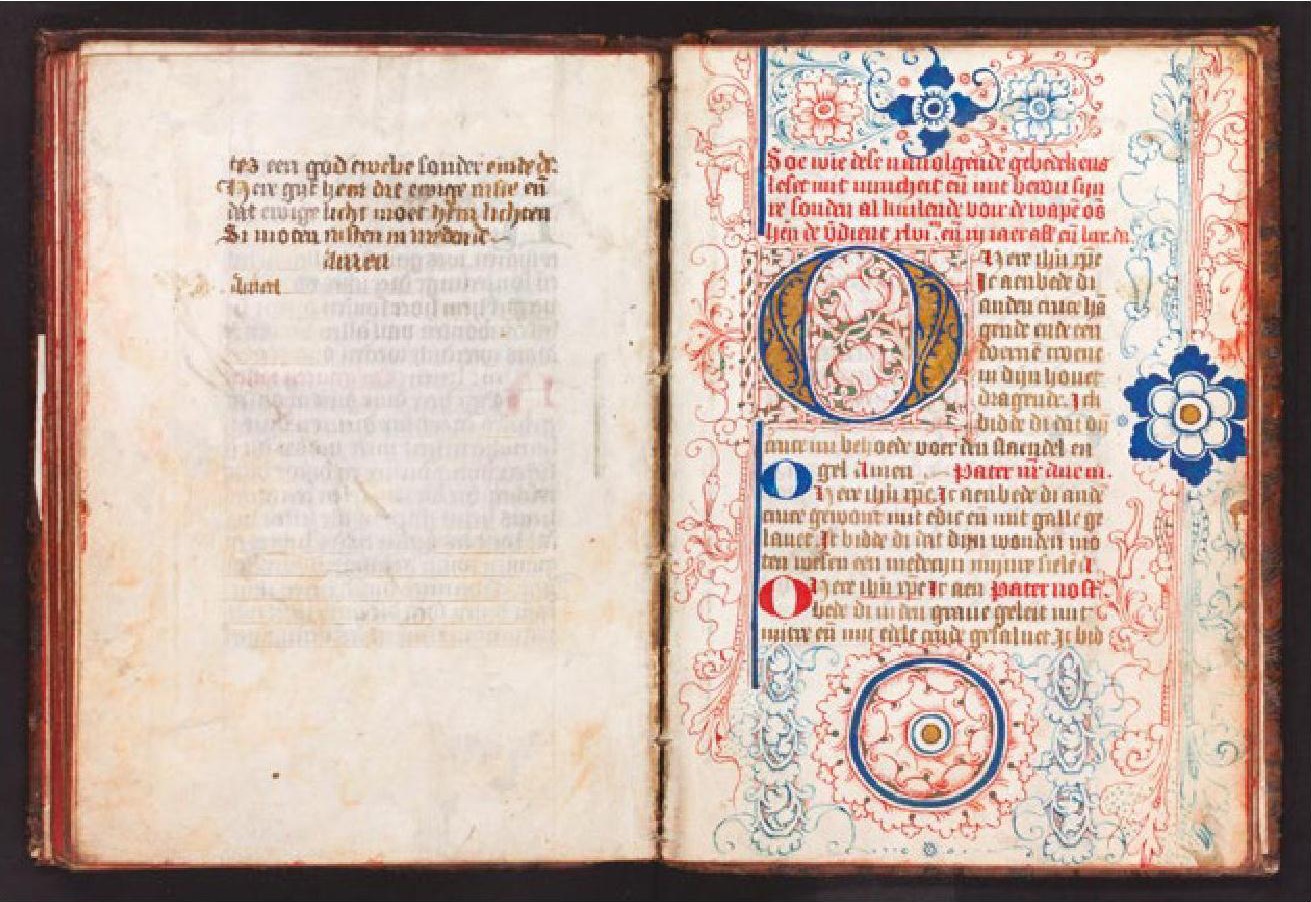 tes een god ewebe sonder einde Ar
Here gift hem dat ewige raste eñ
dat ewige licht moet hem lichten
Si moten rusten in vreden
Amen
Amen
Soe wie dese navolgende gebedekens
leset mit innicheit eñ mit berou syn
re sonden al knilende voir de wapē os
hen de v̄dient
O Here ihū xp̄e
Ic aenbede di
anden cruce hā
gende ende een
doernē crone
in dijn hovet
dragende. Ick
bidde di dat dijn
cruce mi behoede voer den slaende en
gel Amen Pater nr̄ Aue m.
O Here ihū xp̄e. Ic aenbede di ande
cruce gewont mit edic en mit galle ge
lauet. Ic bidde di dat dijn wonden mo
ten wesen een medecijn mijnre siele
O Here ihū xp̄e Ic aen Pater nost̄.
bede di in den graue geleit mit
mirre eñ mit edele crude gesaluet. Ic bid